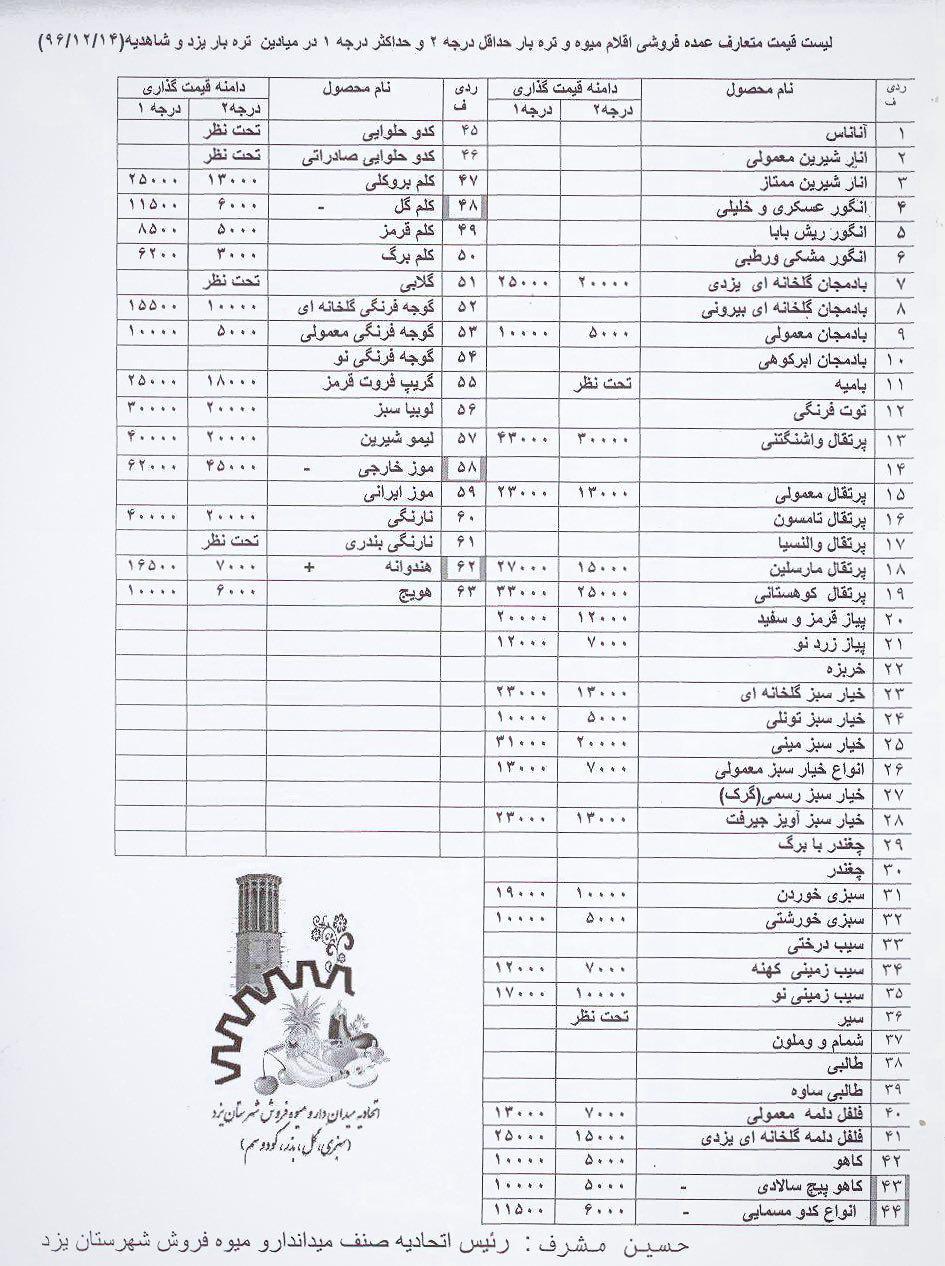 لیست قیمت متعارف عمده فروشی اقلام میوه و تره بار حداقل درجه ۲ و حداکثر درجه ۱ در میادین تره بار یزد و شاهدیه(۹۶/۱۲/۱۴)
ردیف نام محصول دامنه قیمت گذاری
درجه۲ درجه۱
۱ آناناس
۲ انار شیرین معمولی
۳ انار شیرین ممتاز
۴ انگور عسکری و خلیلی
۵ انگور ریش بابا
۶ انگور مشکی ورطبی
۷ بادمجان گلخانه ای یزدی ۲۰۰۰۰ ۲۵۰۰۰
۸ بادمجان گلخانه ای بیرونی
۹ بادمجان معمولی ۵۰۰۰ ۱۰۰۰۰
۱۰ بادمجان ابرکوهی
۱۱ بامیه تحت نظر
۱۲ توت فرنگی
۱۳ پرتقال واشنگتنی ۳۰۰۰۰ ۴۳۰۰۰
۱۴
۱۵ پرتقال معمولی ۱۳۰۰۰ ۲۳۰۰۰
۱۶ پرتقال تامسون
۱۷ پرتقال والنسیا
۱۸ پرتقال مارسلین ۱۵۰۰۰ ۲۷۰۰۰
۱۹ پرتقال کوهستانی ۲۵۰۰۰ ۳۳۰۰۰
۲۰ پیاز قرمز و سفید ۱۲۰۰۰ ۲۰۰۰۰
۲۱ پیاز زرد نو ۷۰۰۰ ۱۲۰۰۰
۲۲ خربزه
۲۳ خیار سبز گلخانه ای ۱۳۰۰۰ ۲۳۰۰۰
۲۴ خیار سبز تونلی ۵۰۰۰ ۱۰۰۰۰
۲۵ خیار سبز مینی ۲۰۰۰۰ ۳۱۰۰۰
۲۶ انواع خیار سبز معمولی ۷۰۰۰ ۱۳۰۰۰
۲۷ خیار سبز رسمی(گرک)
۲۸ خیار سبز آویز جیرفت ۱۳۰۰۰ ۲۳۰۰۰
۲۹ چغندر با برگ
۳۰ چغندر
۳۱ سبزی خوردن ۱۰۰۰۰ ۱۹۰۰۰
۳۲ سبزی خورشتی ۵۰۰۰ ۱۰۰۰۰
۳۳ سیب درختی
۳۴ سیب زمینی کهنه ۷۰۰۰ ۱۲۰۰۰
۳۵ سیب زمینی نو ۱۰۰۰۰ ۱۷۰۰۰
۳۶ سیر تحت نظر
۳۷ شمام و وملون
۳۸ طالبی
۳۹ طالبی ساوه
۴۰ فلفل دلمه معمولی ۷۰۰۰ ۱۳۰۰۰
۴۱ فلفل دلمه گلخانه ای یزدی ۱۵۰۰۰ ۲۵۰۰۰
۴۲ کاهو ۵۰۰۰ ۱۰۰۰۰
۴۳ کاهو پیچ سالادی - ۵۰۰۰ ۱۰۰۰۰
۴۴ انواع کدو مسمایی - ۶۰۰۰ ۱۱۵۰۰
ردیف نام محصول دامنه قیمت گذاری
درجه۲ درجه ۱
۴۵ کدو حلوایی تحت نظر
۴۶ کدو حلوایی صادراتی تحت نظر
۴۷ کلم بروکلی ۱۳۰۰۰ ۲۵۰۰۰
۴۸ کلم گل - ۶۰۰۰ ۱۱۵۰۰
۴۹ کلم قرمز ۵۰۰۰ ۸۵۰۰
۵۰ کلم برگ ۳۰۰۰ ۶۲۰۰
۵۱ گلابی تحت نظر
۵۲ گوجه فرنگی گلخانه ای ۱۰۰۰۰ ۱۵۵۰۰
۵۳ گوجه فرنگی معمولی ۵۰۰۰ ۱۰۰۰۰
۵۴ گوجه فرنگی نو
۵۵ گریپ فروت قرمز ۱۸۰۰۰ ۲۵۰۰۰
۵۶ لوبیا سبز ۲۰۰۰۰ ۳۰۰۰۰
۵۷ لیمو شیرین ۲۰۰۰۰ ۴۰۰۰۰
۵۸ موز خارجی - ۴۵۰۰۰ ۶۲۰۰۰
۵۹ موز ایرانی
۶۰ نارنگی ۲۰۰۰۰ ۴۰۰۰۰
۶۱ نارنگی بندری تحت نظر
۶۲ هندوانه + ۷۰۰۰ ۱۶۵۰۰
۶۳ هویج ۶۰۰۰ ۱۰۰۰۰
اتحادیه میدان دار و میوه فروش شهرستان یزد
(سبزی، گل، بذر، کود و سم)
حسین مشرف : رئیس اتحادیه صنف میداندارو میوه فروش شهرستان یزد